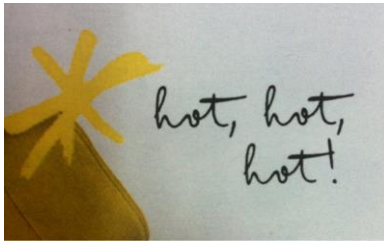 hot, hot,
hot!